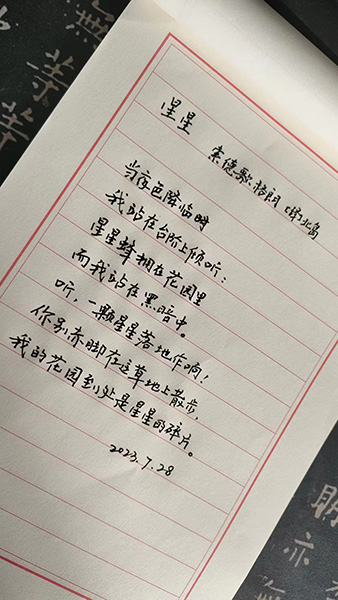 無
等
等
星星
索德格朗 (译)北岛
当夜色降临时
我站在台阶上倾听：
星星蜂拥在花园里
而我站在黑暗中。
听，一颗星星落地作响！
你别赤脚在这草地上散步，
我的花园到处是星星的碎片。
2023.7.28
明
亦
無